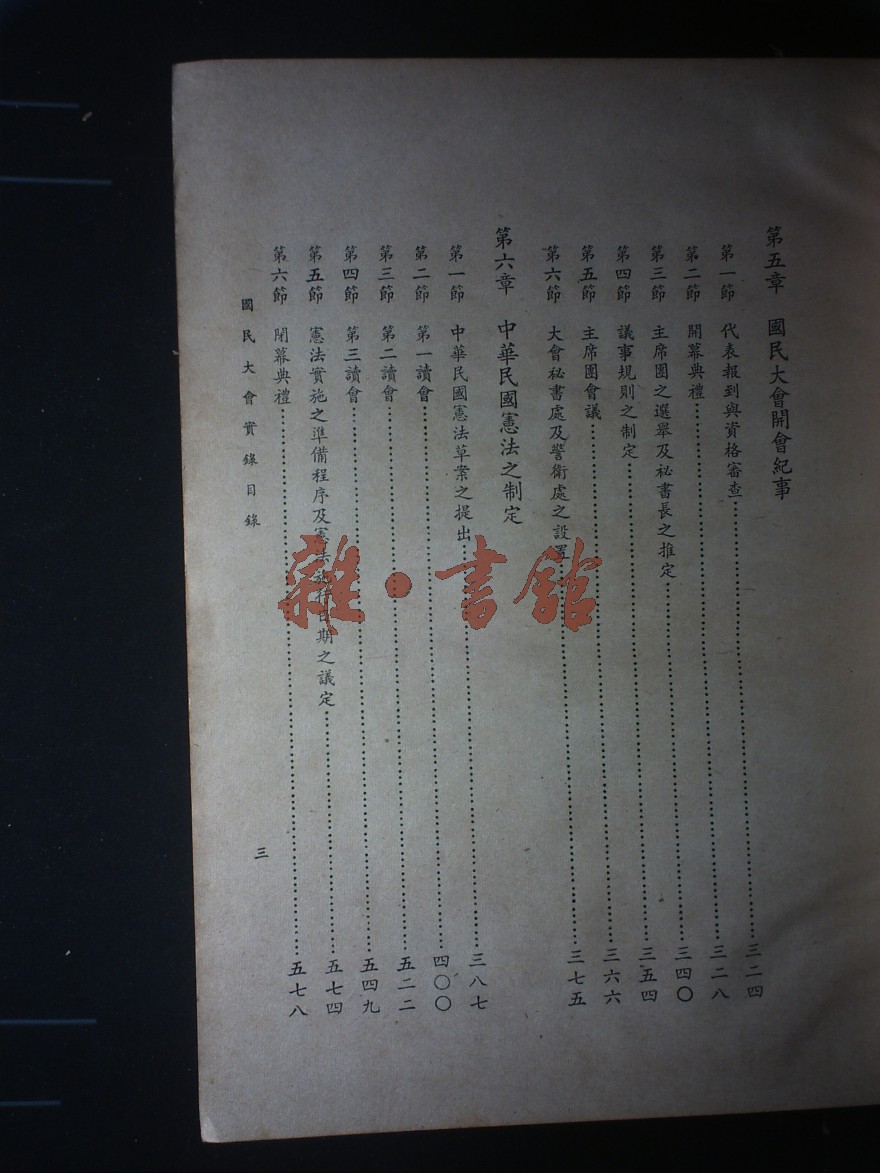 第五章 國民大會開會紀事
第一節 代表報到與資格審查……三二四
第二節 開幕典禮……三二八
第三節 主席團之選舉及祕書長之推定……三四〇
第四節 議事規則之制定……三五四
第五節 主席團會議……三六六
第六節 大會祕書處及警衛處之設置……三七五
第六章 中華民國憲法之制定
第一節 中華民國憲法草案之提出……三八七
第二節 第一讀會……四〇〇
第三節 第二讀會……五二二
第四節 第三讀會……五四九
第五節 憲法實施之準備程序及憲法施行日期之議定……五七四
第六節 閉幕典禮……五七八
國民大會實錄目錄
三
雜·書館